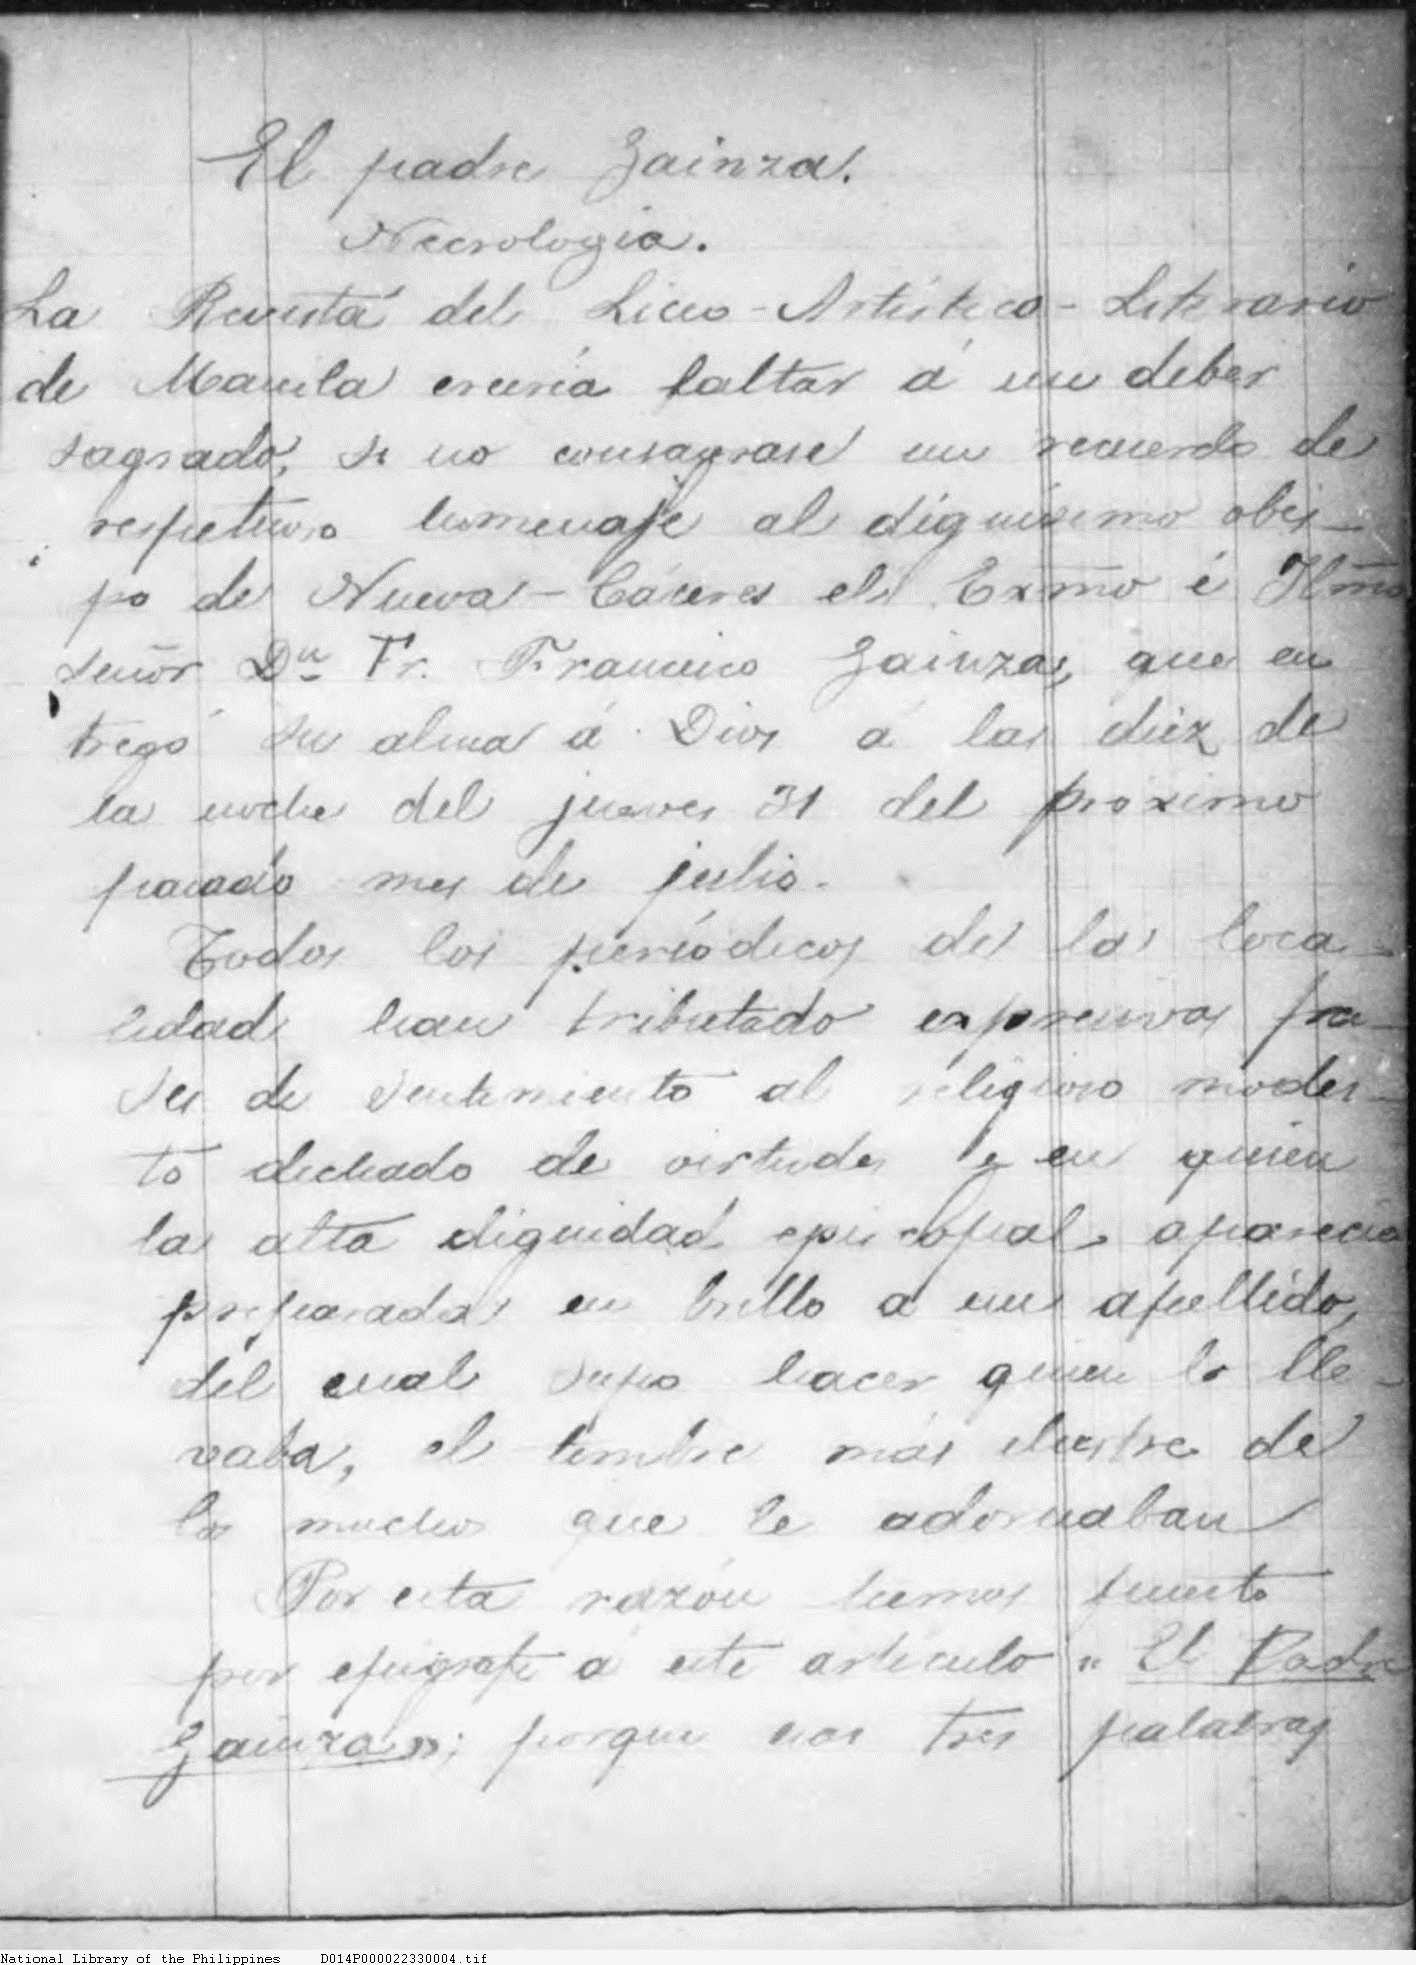 El padre Gainza.
Necrologia.
La Revista del Liceo-Artístico-Literario
de Manila creería faltar á un deber
sagrado, si no consagrase un recuerdo de
respetuoso homenaje al dignísimo obis-
po de Nueva-Cáceres el Exmo é Ilmo
señor Dn Fr. Francisco Gainza, que en
tregó su alma á Dios á las diez de
la noche del jueves 31 del próximo
pasado mes de julio.
Todos los periódicos de la loca-
lidad han tributado expresivas fra-
ses de sentimiento al religioso modes-
to dechado de virtudes y en quien
la alta dignidad episcopal aparecía
preparada en brillo a un apellido,
del cual supo hacer quien lo lle-
vaba, el timbre más ilustre de
los muchos que le adornaban
Por esta razón hemos puesto
por epigrafe á este articulo "El Padre
Gainza"; porque esas tres palabras
National Library of the Philippines D014P000022330004.tif